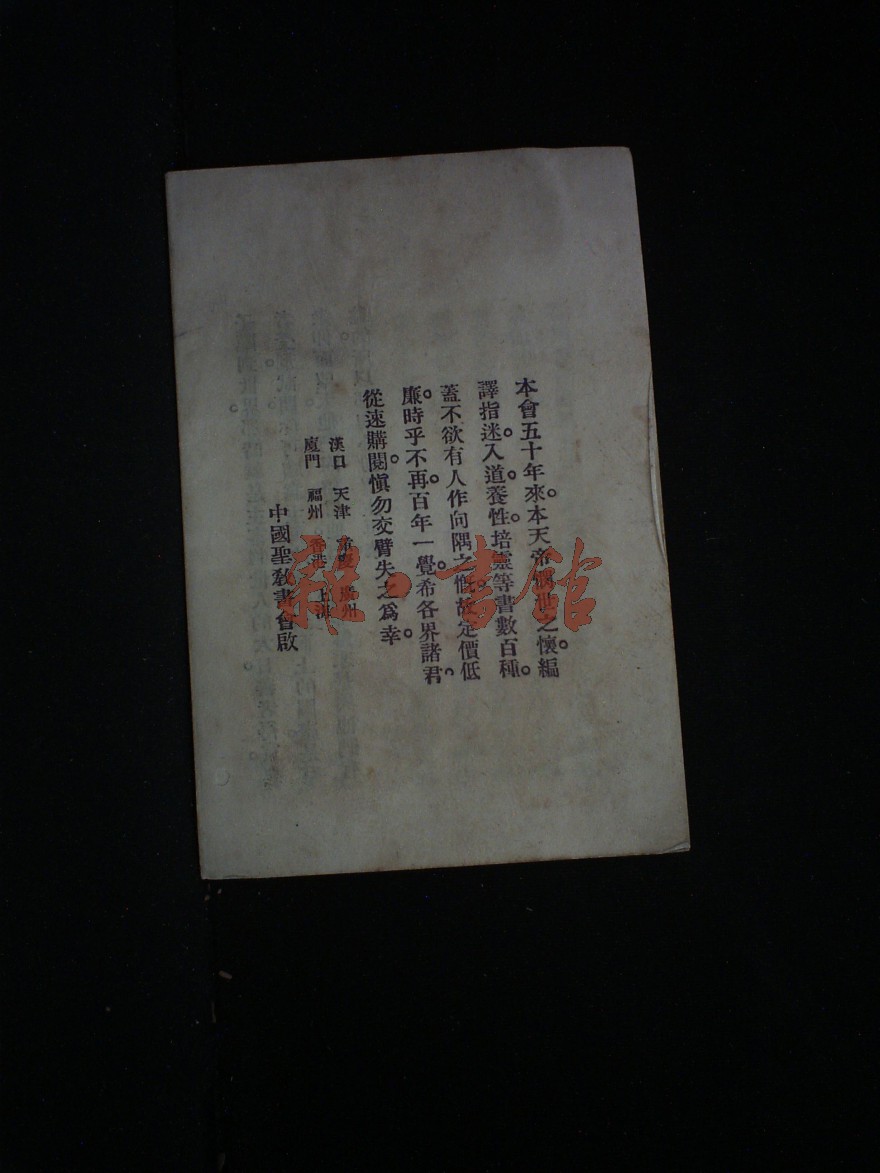 本會五十年來。本天帝憫世之懷。編
譯指迷。入道。養性。培靈等書數百種。
蓋不欲有人作向隅之慨。故定價低。
廉。時乎不再。百年一覺。希各界諸君
從速購閱。愼勿交臂失之爲幸。
漢口 天津 重慶 廣州
廈門 福州 香港 上海
中國聖教書會啟
雜·書館